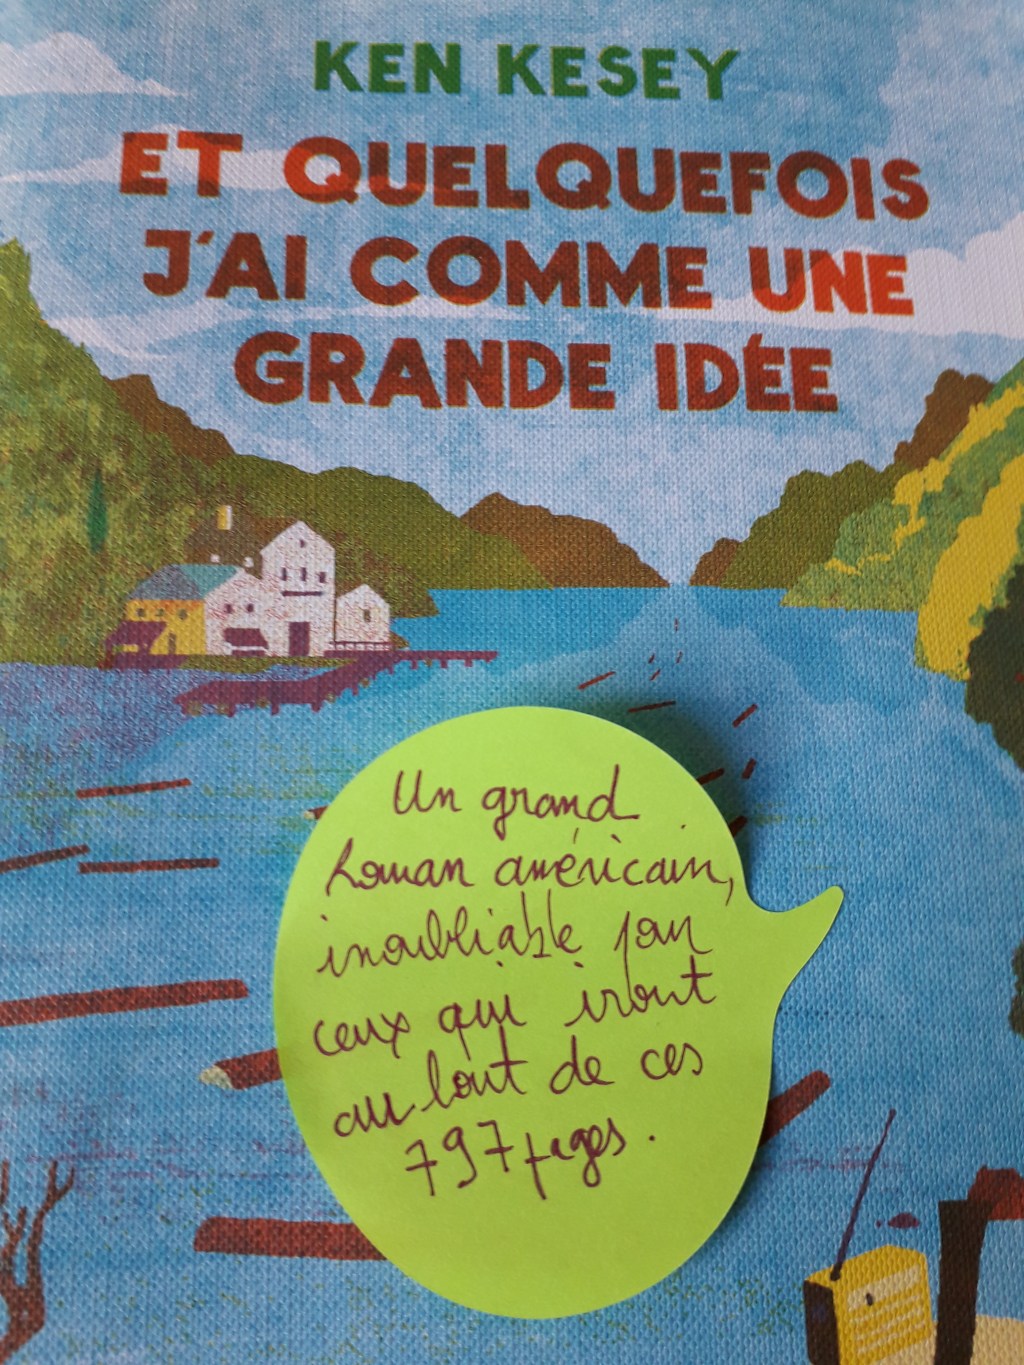 KEN KESEY
ET QUELQUEFOIS
J'AI COMME UNE
GRANDE IDÉE
Un grand
roman américain,
inoubliable pour
ceux qui iront
au bout de ces
797 pages.